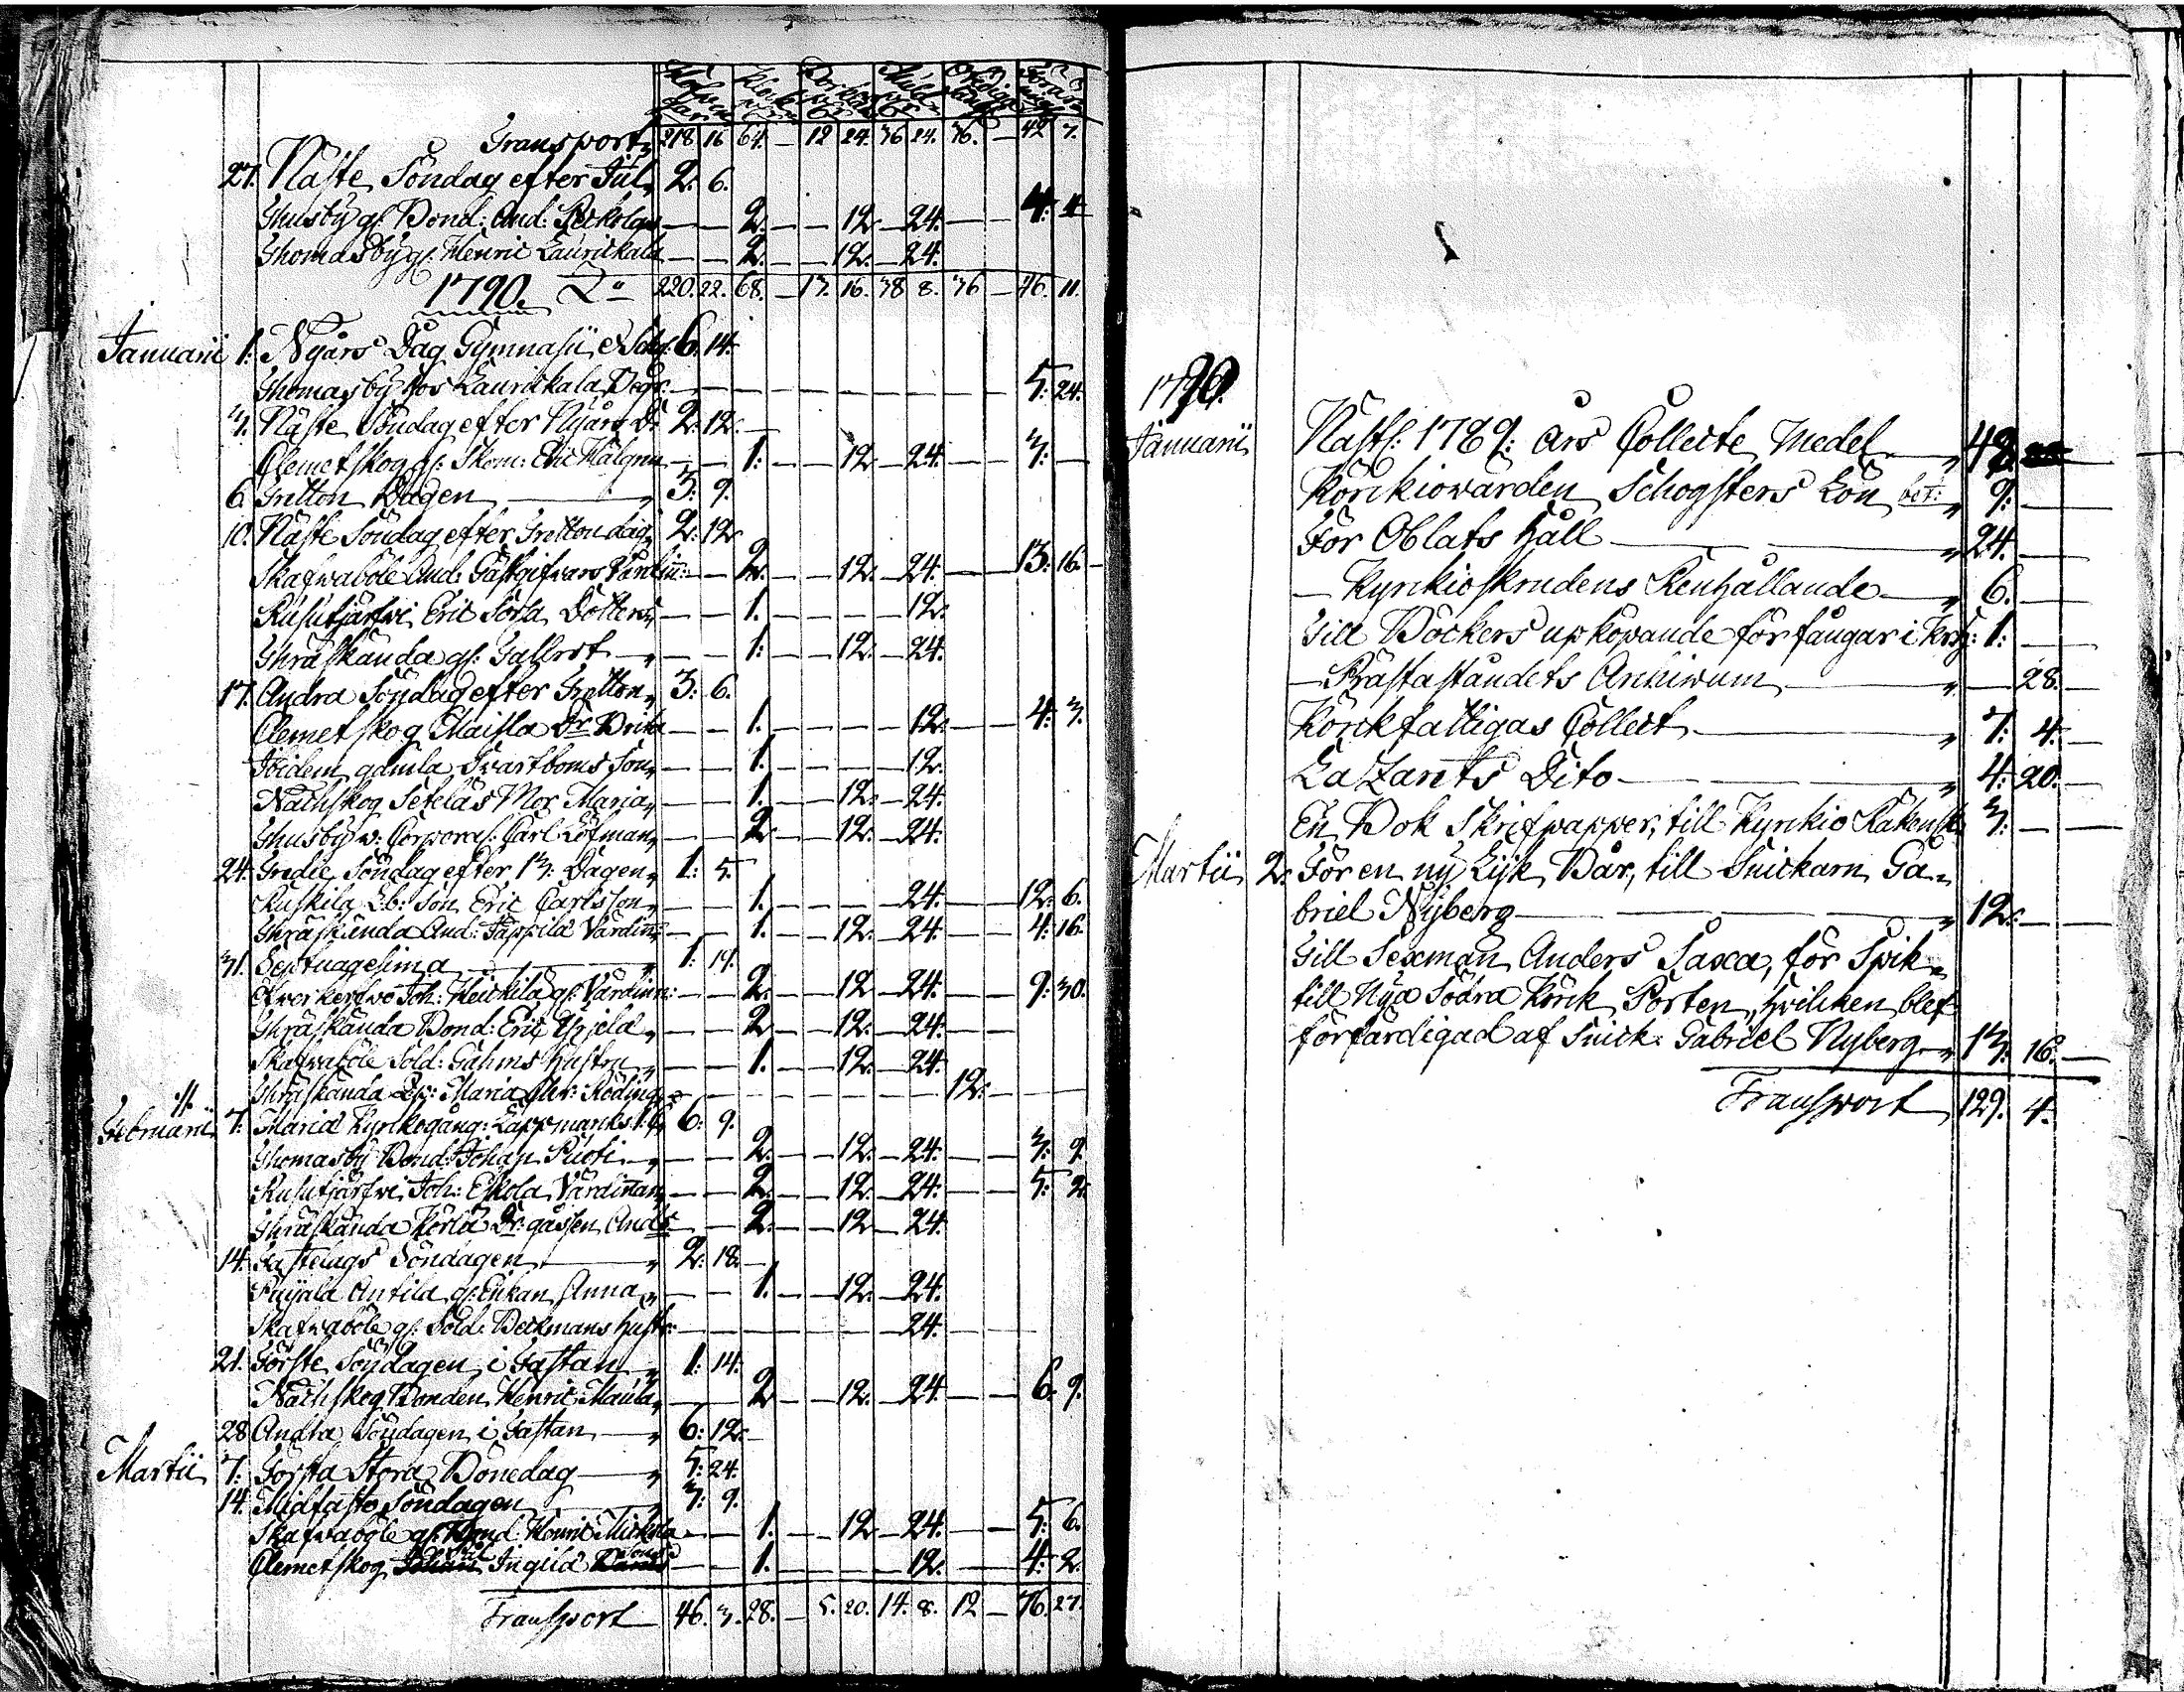 Transport 218 16 64. — 12 24. 36 24. 36. — 42 7.
27. Näste Söndag efter Jul 2. 6.
Thusby gl. Bond: And: — — 2. — — 12. — 24. — — 4: 4
Thomasby gl. Henric Laurickala — — 2. — — 12. — 24.
1790. 220. 22. 68. — 13. 16. 38 8. 36 — 46. 11.
Januarii 1: Nyårs Dag Gymnasii & 6. 14.
Thomasby hos Laurickala — — — 5: 24.
3. Näste Söndag efter Nyårs D: 2: 12. —
Clemetskog gl: Eric Hälgren — — 1: — — 12. — 24. — — 3: —
6. Tretton Dagen — 3: 9.
10. Näste Söndag efter Tretton dag 2: 12.
Skafwaböle And: Gästgifvars Värdin: — — 2. — — 12. — 24. — — 13: 16.
Rusutjärfwi Eric Sorsa Dotter — — 1. — — — — 12.
Thräskända gl: — — 1: — — 12. — 24.
17. Andra Söndag efter Tretton 3: 6.
Clemetskog Maisla Dr Brita — — 1. — — — — 12. — — 4: 3.
Ibidem gamla Svartboms Son — — 1. — — — — 12.
Nackskog Seteläs Mor Maria — — 1. — — 12. — 24.
Thusby v: Corporal: Carl Löfman — — 2. — — 12. — 24.
24. Tredie Söndag efter 13: Dagen 1: 5.
Ruskila Eb: Son Eric Carlsson — — 1. — — — — 24. — — 12: 6.
Thräskända And: Pappila Värdin: — — 1. — — 12. — 24. — — 4: 16.
31. Septuagesima — 1: 19.
Öfverkerfwo Joh: Heickilä gl: Värdinn: — — 2. — — 12. — 24. — — 9: 30.
Thräskända Bond: Eric — — 2. — — 12. — 24. — —
Skafwaböle Sold: Gahms Hustru — — 1. — — 12. — 24.
Thräskända Maria Röding — — — 12. — —
Februarii 7. Mariä Kyrkogång: Lappmarks 6: 9.
Thomasby Bond: Johan — — 2. — — 12. — 24. — — 3: 9.
Rusutjärfwi Joh: Eskola Värdinnan — — 2. — — 12. — 24. — — 5: 2.
Thräskända Kerla Dr: gossen And: — — 2. — — 12. — 24.
14. Fastelags Söndagen — 2. 18. —
Paijala Antila gl: Enkan Anna — — 1. — — 12. — 24.
Skafwaböle gl: Sold: Beckmans Hustr: — — — 24. — —
21. Förste Söndagen i Fastan 1: 14.
Nackskog Bonden Henric Maula — — 2. — — 12. — 24. — — 6. 9.
28 Andra Söndagen i Fastan 6: 12. —
Martii 7. Första Stora Bönedag — 5: 24.
14. Midfasto Söndagen — 3: 9.
Skafwaböle gl: Bond: Henric Mickola — — 1. — — 12. — 24. — — 5: 6.
Clemetskog Ingild — — 1. — — — — 12. — — 4: 2.
Transport 46. 3. 28. — 5. 20. 14. 8. 12 — 76. 27.
1790.
Januarii Nästl: 1789: års Collecte Medel 48.
Körckiowärden Schogsters Lön bet: 9: —
För Oblats Håll — 24. —
— Kyrkioskrudens Renhållande — 6. —
Till Böckers upköpande för fångar i 1: —
— Prästaståndets Archivum — — 28. —
Körckfattigas Collect — 7: 4. —
Lazarets Dito — 4: 20. —
En Bok Skrifpapper, till Kyrkio Räkensk: 3: —
Martii 2. För en ny Lijk Bår, till Snickarn Ga-
briel Nyberg — 12. —
Till Sexman Anders Saxa, för Spik
till Nya Södra Körck Porten, hvilcken blef
förfärdigad af Snick: Gabriel Nyberg — 13: 16. —
Transport 129. 4.